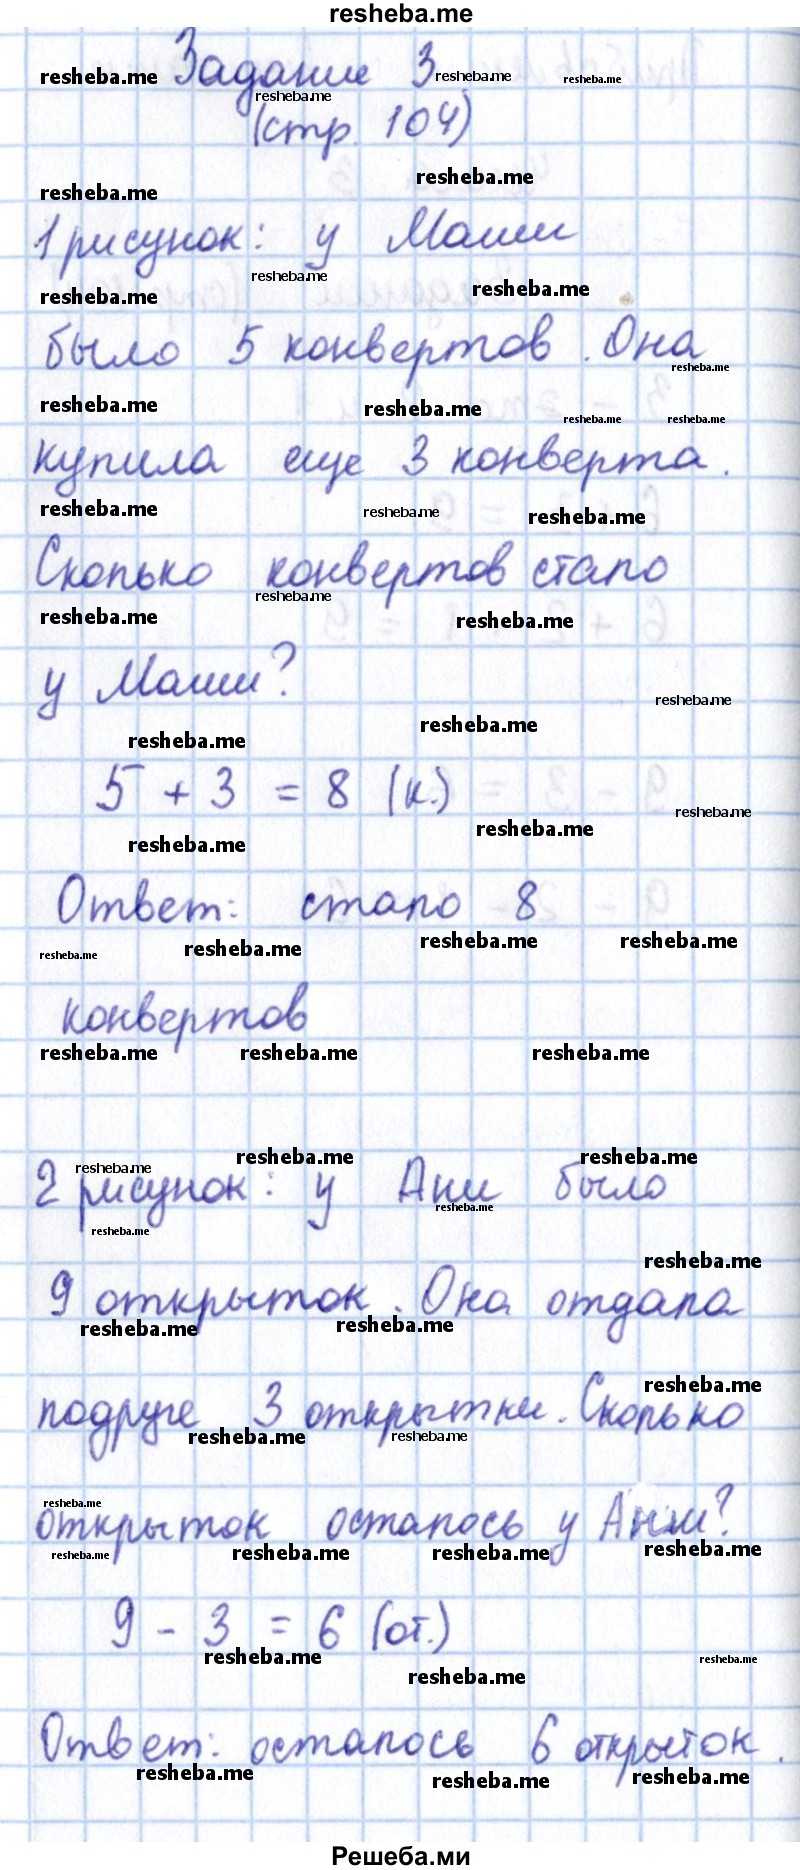 resheba.me
Задание 3
(стр. 104)
1 рисунок: у Маши
было 5 конвертов. Она
купила еще 3 конверта.
Сколько конвертов стало
у Маши?
5 + 3 = 8 (к.)
Ответ: стало 8
конвертов
2 рисунок: у Ани было
9 открыток. Она отдала
подруге 3 открытки. Сколько
открыток осталось у Ани?
9 - 3 = 6 (от.)
Ответ: осталось 6 открыток.
Решеба.ми